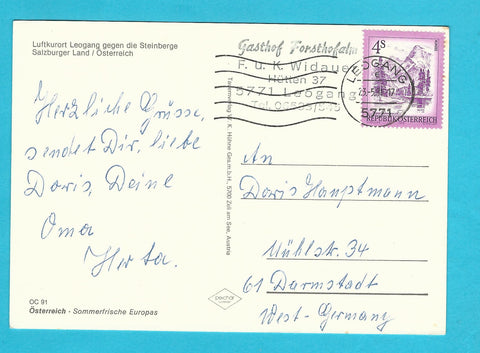 Luftkurort Leogang gegen die Steinberge
Salzburger Land / Österreich
Herzliche Grüsse,
sendet Dir, liebe
Doris, Deine
Oma
Herta.
OC 91
Österreich - Sommerfrische Europas
Gasthof Forsthofalm
F. u. K. Widauer
Hütten 37
5771 Leogang
LEOGANG
5771
4 S
REPUBLIK ÖSTERREICH
An
Doris Hauptmann
Mühlstr. 34
61 Darmstadt
West-Germany